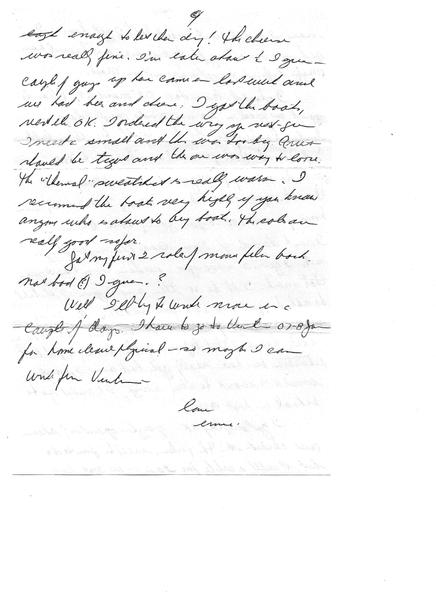 9
enough to let her dry! The cheese
was really fine. I'm eaten about it I guess
couple of guys up here came on last week and
we had beer and cheese. I got the boots,
vest etc OK. I ordered the wrong vest-
I need a small and this was too big
should be tight and this one was way to loose.
The "thermal" sweatshirt is really warm. I
recommend the boots very highly if you know
anyone who is about to buy boots. The soles are
really good so far.
Got my first 2 rolls of movie film back.
not bad I guess.?
Well I'll try to write more in a
couple of days. I have to go to
for home leave physical — so maybe I can
write from
love